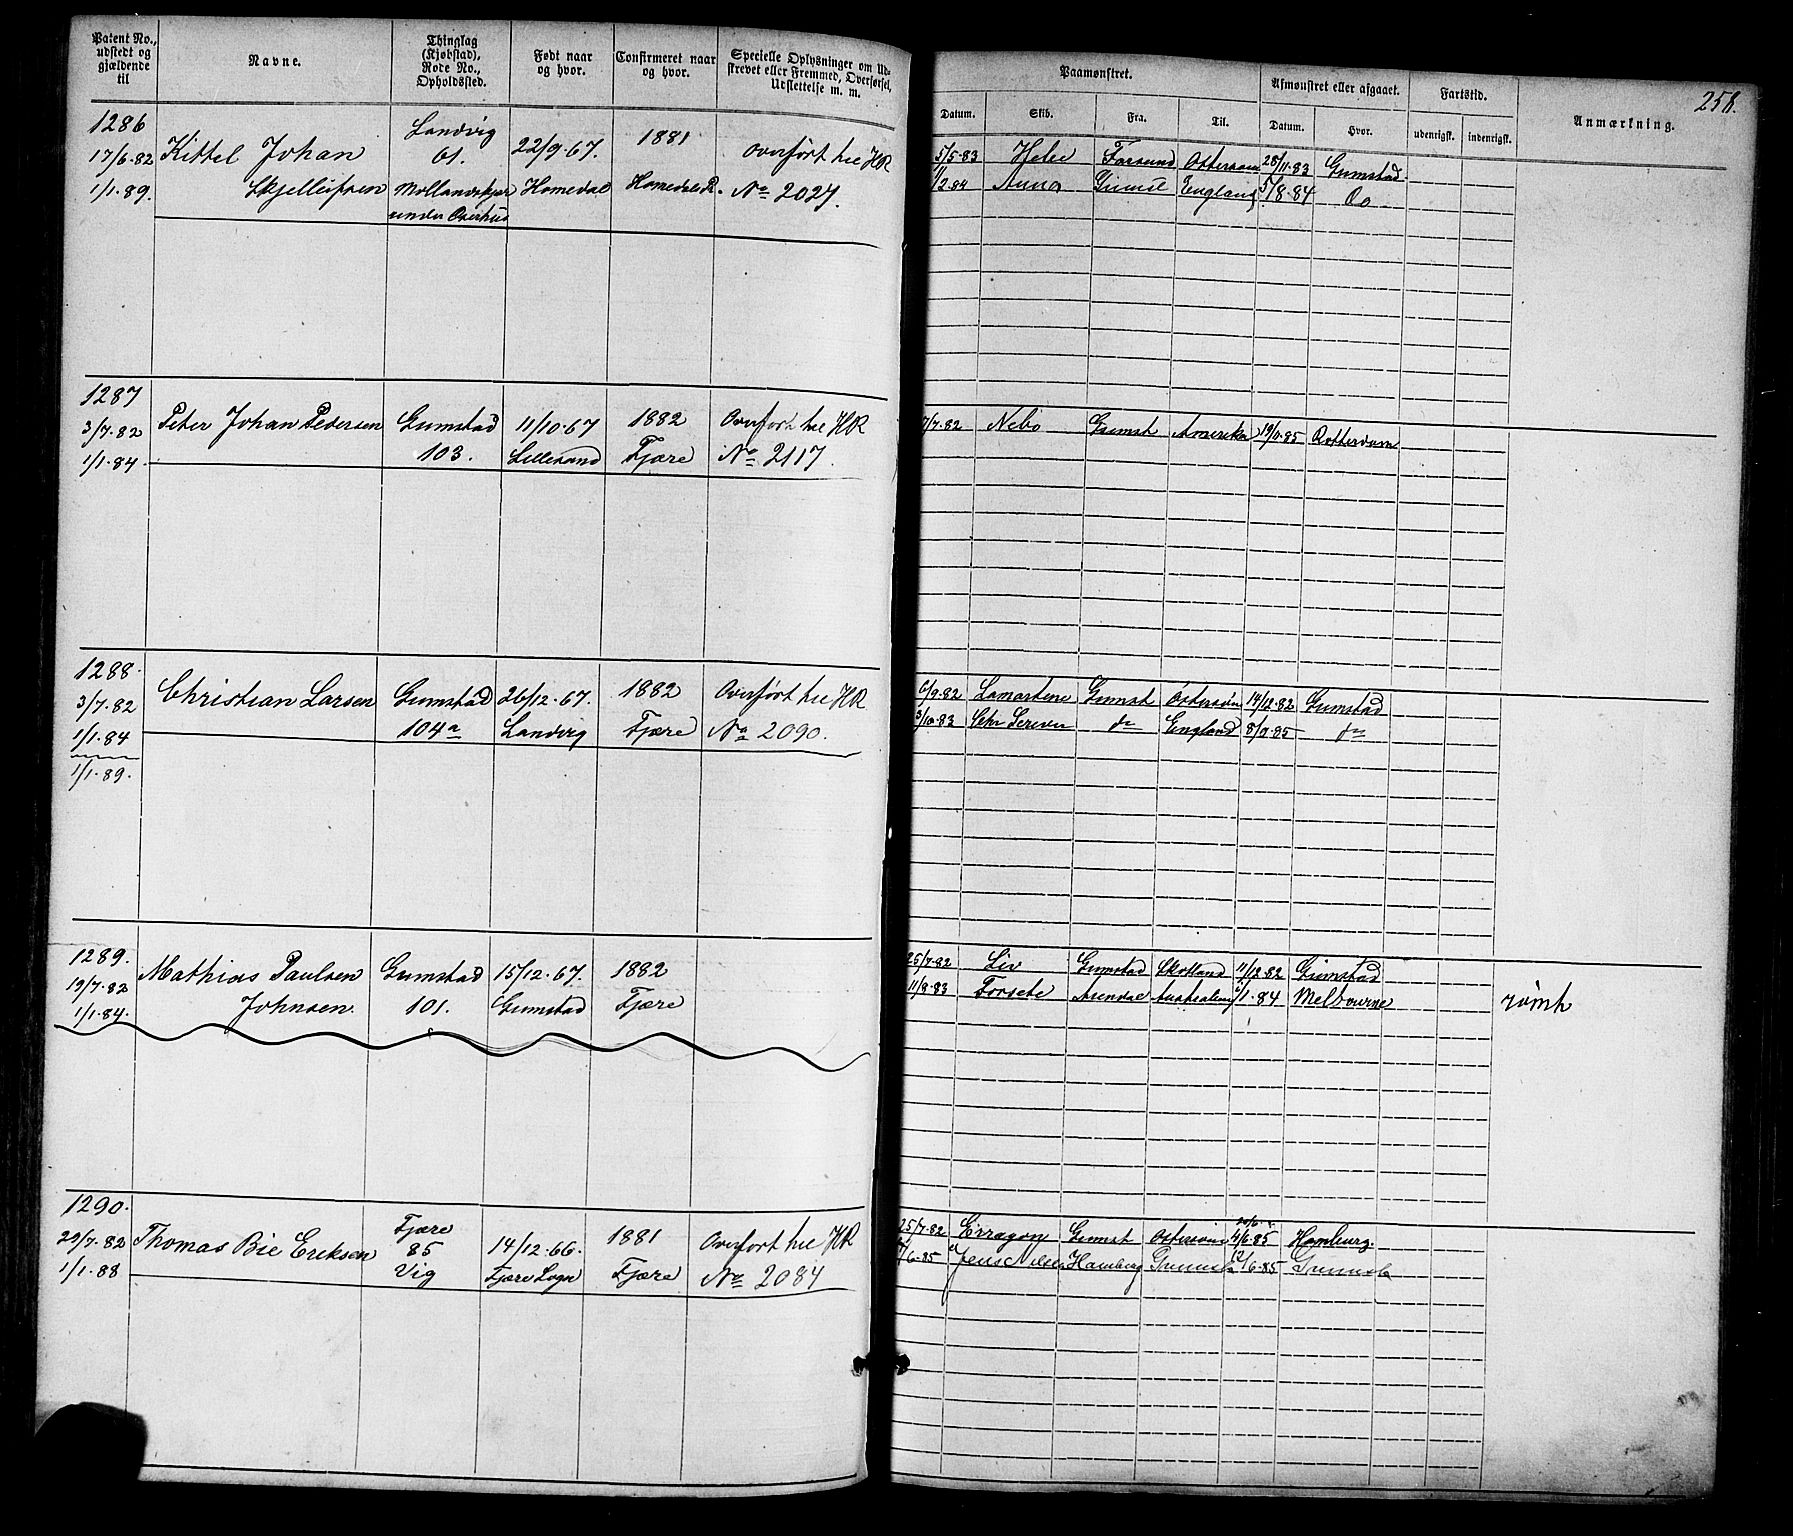 Patent No., udstedt og gjældende til
Navne.
Thinglag (Kjøbstad), Rode No., Opholdssted.
Født naar og hvor.
Confirmeret naar og hvor.
Specielle Oplysninger om Udskrevet eller Fremmed, Overførsel, Udslettelse m. m.
Paamønstret.
Afmønstret eller afgaaet.
Fartstid.
Anmærkning.
258.
Datum.
Skib.
Fra.
Til.
Datum.
Hvor.
udenrigsk.
indenrigsk.
1286
17/6.82
1/1.89.
Kittel Johan
Landvig
61.
under
22/9.67.
Homedal
1881
Homedal
Overført til HR
No 2027.
5/5.83 Hebe 28/11.83 Grimstad
Anna England 5/8.84 Do
1287
3/7.82
1/1.84.
Peter Johan Pedersen
Grimstad
103.
11/10.67
Lillesand
1882
Fjære
Overført til HR
No 2117.
7/7.82 Nebo Grimst Amerika Rotterdam
1288.
3/7.82
1/1.84
1/1.89.
Christian Larsen
Grimstad
104a
26/12.67.
Landvig
1882
Fjære
Overført til HR
No 2090.
Lamartine Grimst Østersøen 14/12.82 Grimstad
3/10.83 England
1289.
19/7.82
1/1.84.
Mathias Paulsen
Johnsen
Grimstad
101.
15/12.67.
Grimstad
1882
Fjære
25/7.82 Liv Grimstad Skotland 11/12.82 Grimstad
11/8.83 Forsete Arendal Melbourne
rømt
1290.
22/7.82
1/1.88
Thomas Bie Eriksen
Fjære
85
Vig
14/12.66.
Fjære Sogn
1881
Fjære
Overført til HR
No 2084
25/7.82 Grimst Østersøen Hamburg.
Jens Nilsen Hamburg 12/6.85